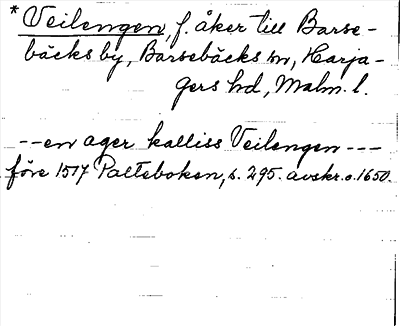 * Veilengen, f. åker till Barse-
bäcks by, Barsebäcks sn, Harja-
gers hd, Malm. l.
--en ager kalliss Veilengen---
före 1517 Palteboken, s. 295. avskr. o. 1650.